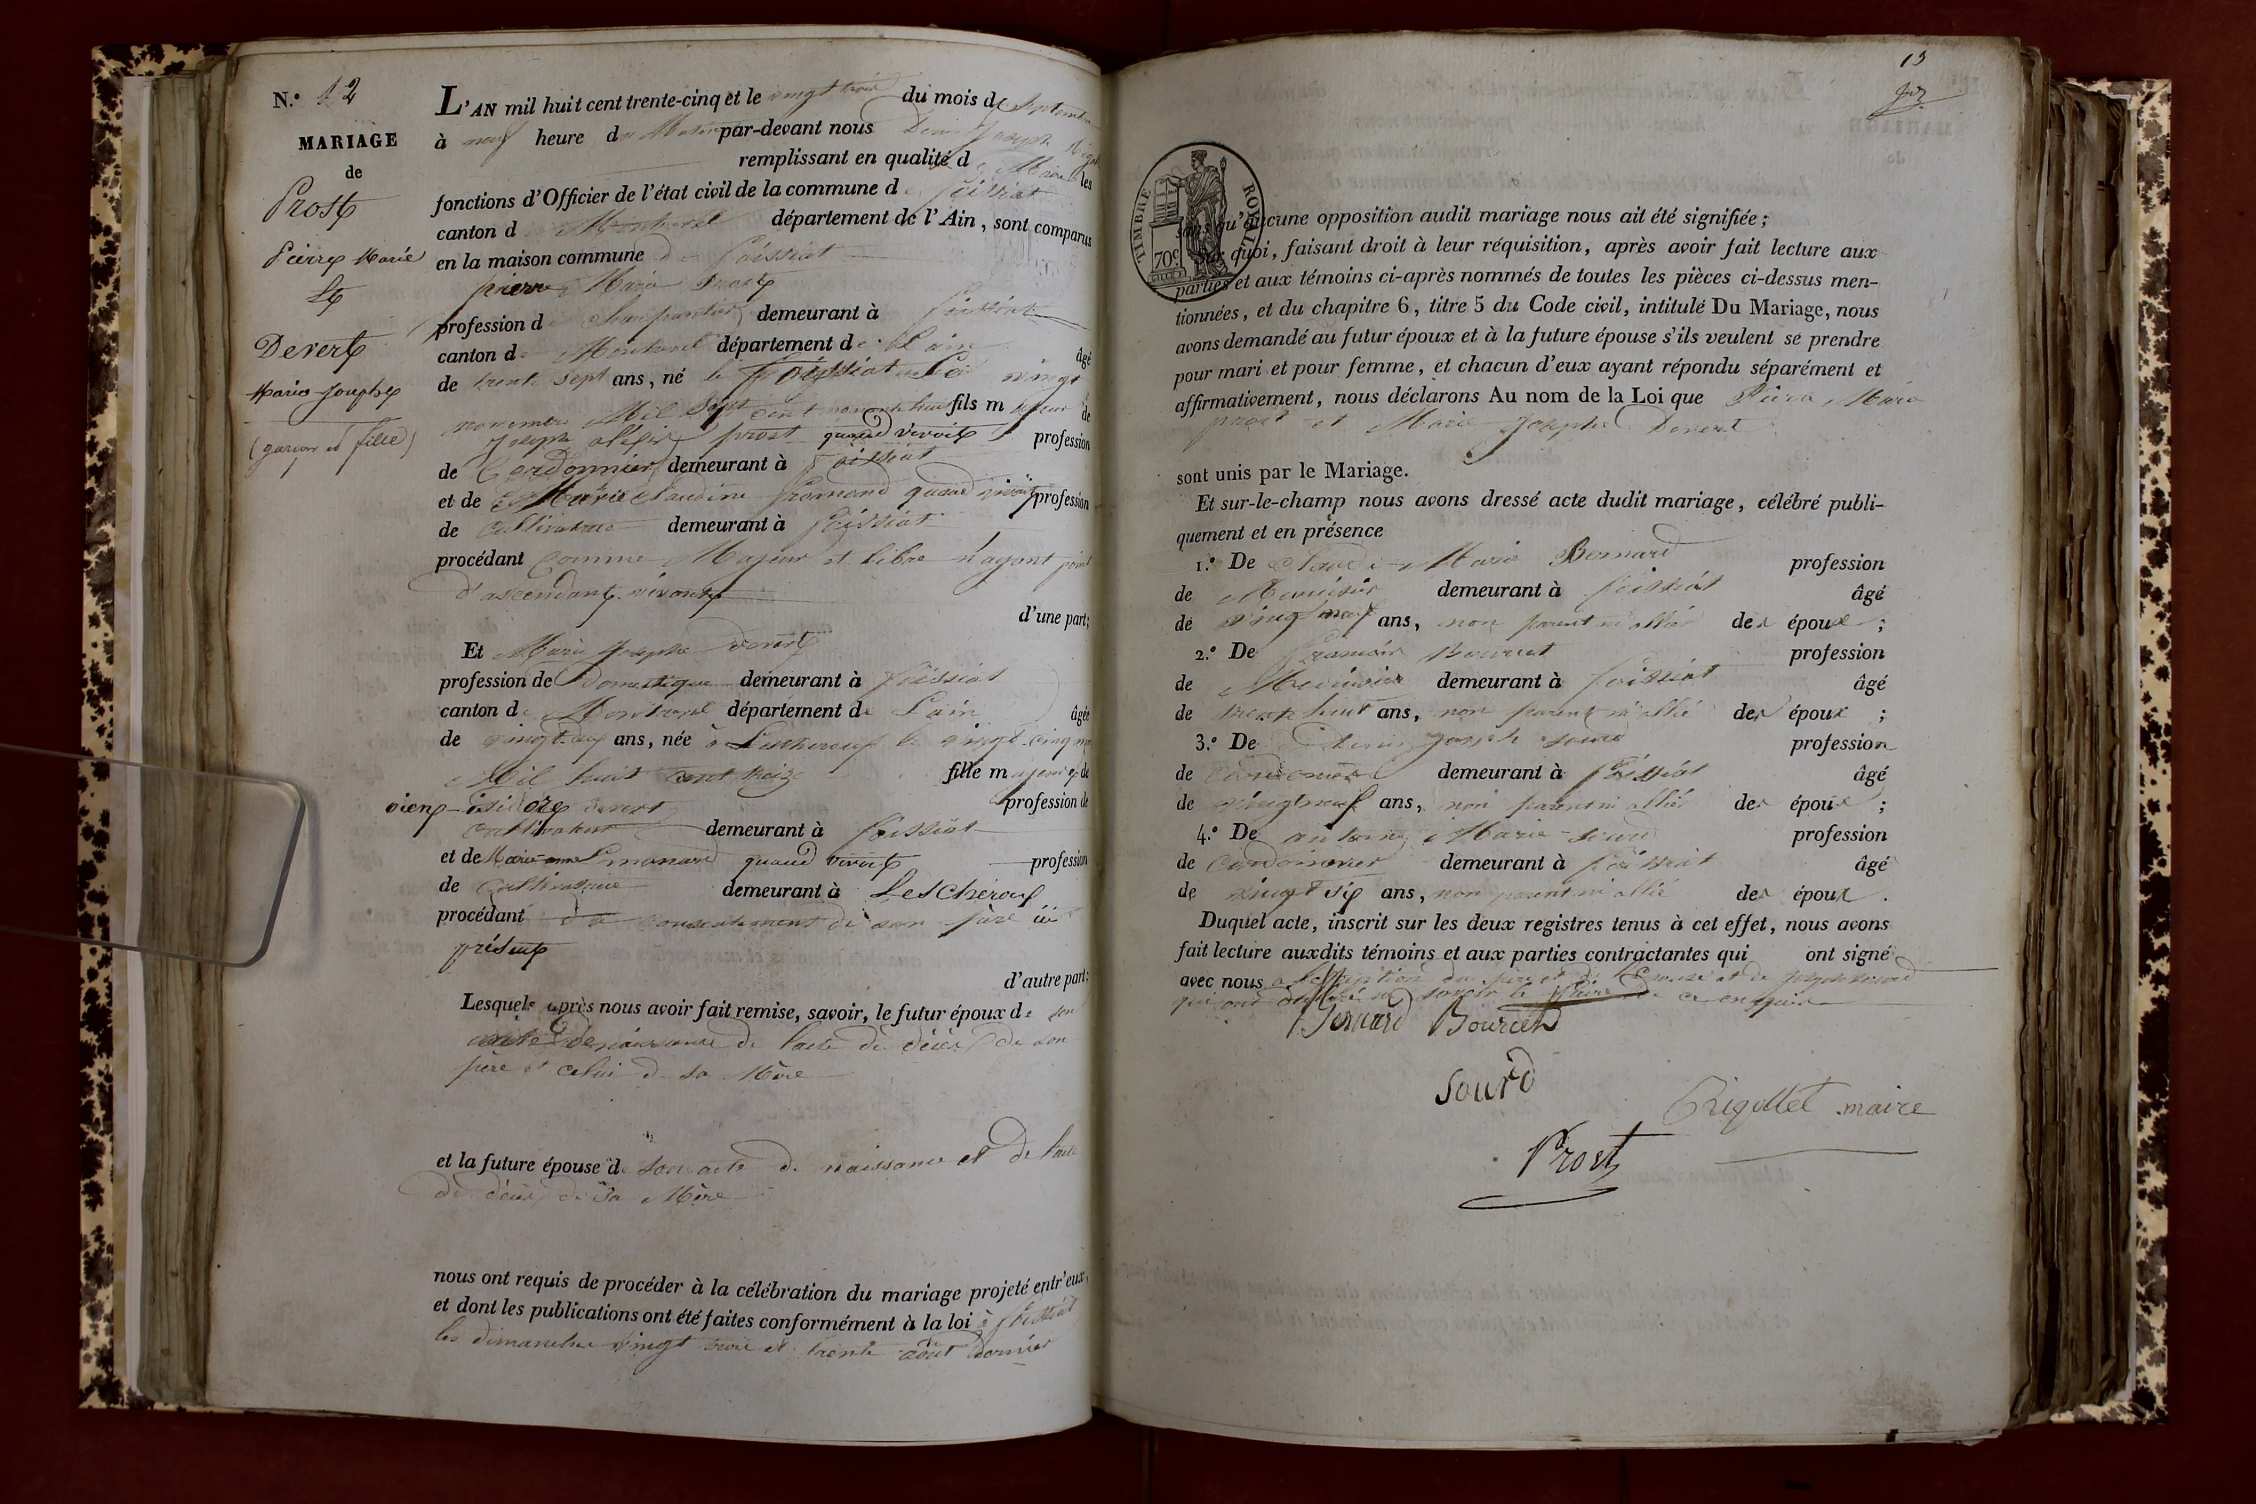 N.° 12
MARIAGE
de
Prost
Pierre Marie
Et
Devert
Marie Josephe
(garçon et fille)
L'AN mil huit cent trente-cinq et le vingt trois du mois de Septembre
à neuf heure du Matin par-devant nous Denis Joseph
remplissant en qualité de Maire les
fonctions d'Officier de l'état civil de la commune de foissiat
canton de Montrevel département de l'Ain, sont comparus
en la maison commune de foissiat
pierre Marie Prost
profession de Charpentier demeurant à foissiat
canton de Montrevel département de l'ain âgé
de trente sept ans, né à foissiat le vingt
novembre Mil Sept cent nonante huit fils majeur de
Joseph alexis prost quand vivoit profession
de Cordonnier demeurant à foissiat
et de Marie Claudine quand vivoit profession
de Cultivatrice demeurant à foissiat
procédant comme Majeur et libre n'ayant point
d'ascendant vivant
d'une part;
Et Marie Josephe devert
profession de Domestique demeurant à foissiat
canton de Montrevel département de Lain âgée
de vingt deux ans, née à Lescheroux le vingt cinq
Mil huit cent treize fille majeure de
isidore devert profession de
Cultivateur demeurant à foissiat
et de Marie anne quand vivoit profession
de Cultivatrice demeurant à Lescheroux
procédant du consentement de son père ici
présent
d'autre part:
Lesquels après nous avoir fait remise, savoir, le futur époux de son
acte de naissance de l'acte de décès de son
père et celui de sa Mère
et la future épouse de son acte de naissance et de l'acte
de décès de sa Mère
nous ont requis de procéder à la célébration du mariage projeté entr'eux,
et dont les publications ont été faites conformément à la loi à foissiat
les dimanches vingt trois et trente août dernier
13
TIMBRE ROYAL
70c
sans qu'aucune opposition audit mariage nous ait été signifiée;
Sur quoi, faisant droit à leur réquisition, après avoir fait lecture aux
parties et aux témoins ci-après nommés de toutes les pièces ci-dessus men-
tionnées, et du chapitre 6, titre 5 du Code civil, intitulé Du Mariage, nous
avons demandé au futur époux et à la future épouse s'ils veulent se prendre
pour mari et pour femme, et chacun d'eux ayant répondu séparément et
affirmativement, nous déclarons Au nom de la Loi que Pierre Marie
prost et Marie Josephe Devert
sont unis par le Mariage.
Et sur-le-champ nous avons dressé acte dudit mariage, célébré publi-
quement et en présence
1.° De Claude Marie Bernard profession
de Menuisier demeurant à foissiat âgé
de vingt neuf ans, non parent ni allié des époux;
2.° De françois Bourcet profession
de Menuisier demeurant à foissiat âgé
de trente huit ans, non parent ni allié des époux;
3.° De Denis Joseph Sourd profession
de Cordonnier demeurant à foissiat âgé
de vingt neuf ans, non parent ni allié des époux;
4.° De antoine Marie Sourd profession
de Cordonnier demeurant à foissiat âgé
de vingt six ans, non parent ni allié des époux.
Duquel acte, inscrit sur les deux registres tenus à cet effet, nous avons
fait lecture auxdits témoins et aux parties contractantes qui ont signé
avec nous a l'exception du père et de l'Epouse et de joseph Sourd
qui ont déclaré ne savoir le faire de ce enquis
Bernard Bourcet
Sourd
Rigollet maire
Prost